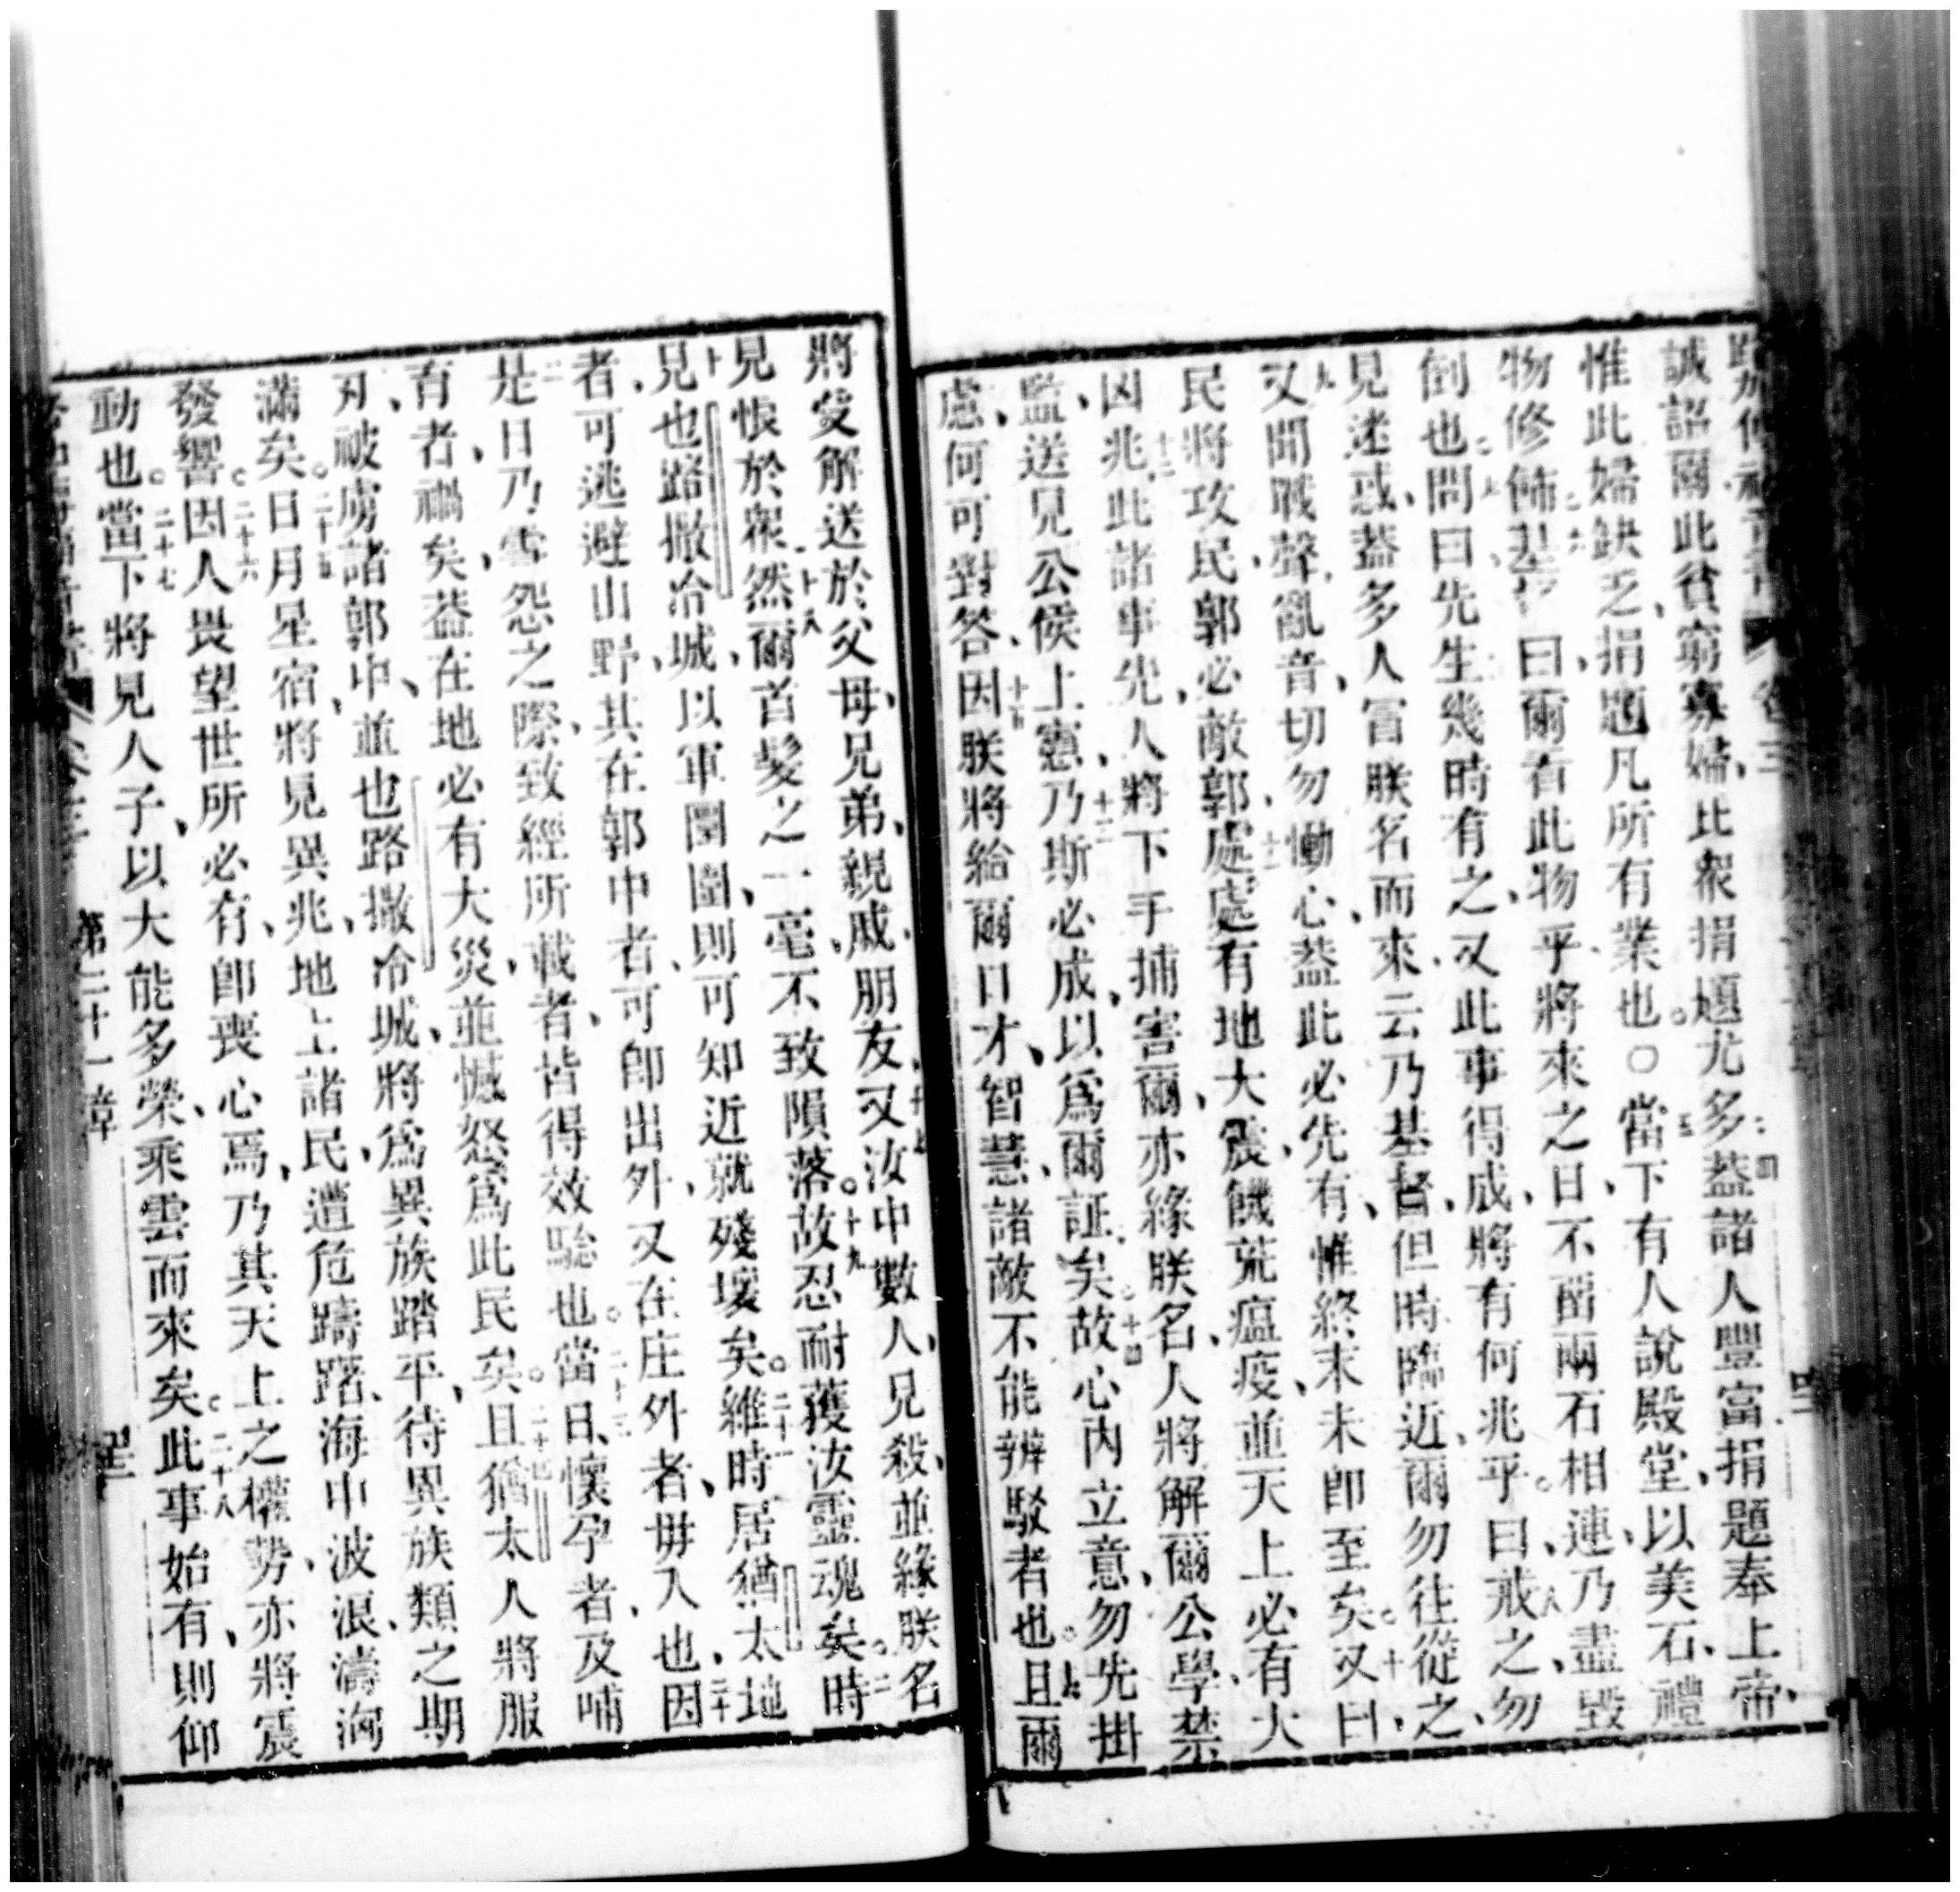 誠詔爾此貧窮寡婦、比衆捐題尤多、四葢諸人豐富捐題奉上帝、
惟此婦缺乏、捐題凡所有業也。○五當下有人說殿堂、以美石、禮
物修飾。六基 曰、爾看此物乎、將來之日、不畱兩石相連、乃盡毀
倒也。七問曰、先生幾時有之、又此事得成、將有何兆乎。八曰、戒之、勿
見迷惑、葢多人冒朕名而來、云乃基督、但時臨近、爾勿往從之、
九又聞戰聲亂音、切勿慟心、葢此必先有、惟終末未即至矣。十又曰、
民將攻民、郭必敵郭、十一處處有地大震、饑荒瘟疫、並天上必有大
凶兆、十二此諸事先、人將下手捕害爾、亦緣朕名、人將解爾公學、禁
監、送見公侯上憲、十三乃斯必成、以爲爾証矣。十四故心內立意、勿先掛
慮、何可對答、十五因朕將給爾口才、智慧、諸敵不能辨駁者也。十六且爾
將受解送於父母、兄弟、親戚、朋友、又汝中數人、見殺、十七並緣朕名
見恨於衆、十八然爾首髮之一毫、不致隕落。十九故忍耐獲汝靈魂矣。二十時
見也路撒冷城、以軍圍圍、則可知近就殘壞矣。二十一維時、居猶太地
者、可逃避山野、其在郭中者、可即出外、又在庄外者、毋入也、二十二因
是日乃雪怨之際、致經所載者、皆得效驗也。二十三當日、懷孕者、及哺
育者、禍矣、葢在地必有大災、並憾怒爲此民矣。二十四且猶太人將服
刃、被虜諸郭中、並也路撒冷城、將爲異族踏平、待異族類之期
滿矣。二十五日月星宿、將見異兆、地上諸民、遭危躊躇、海中波浪濤洶
發響。二十六因人畏望世所必有、即喪心焉、乃其天上之權勢、亦將震
動也。二十七當下將見人子、以大能多榮、乘雲而來矣。二十八此事始有、則仰
第二十一章